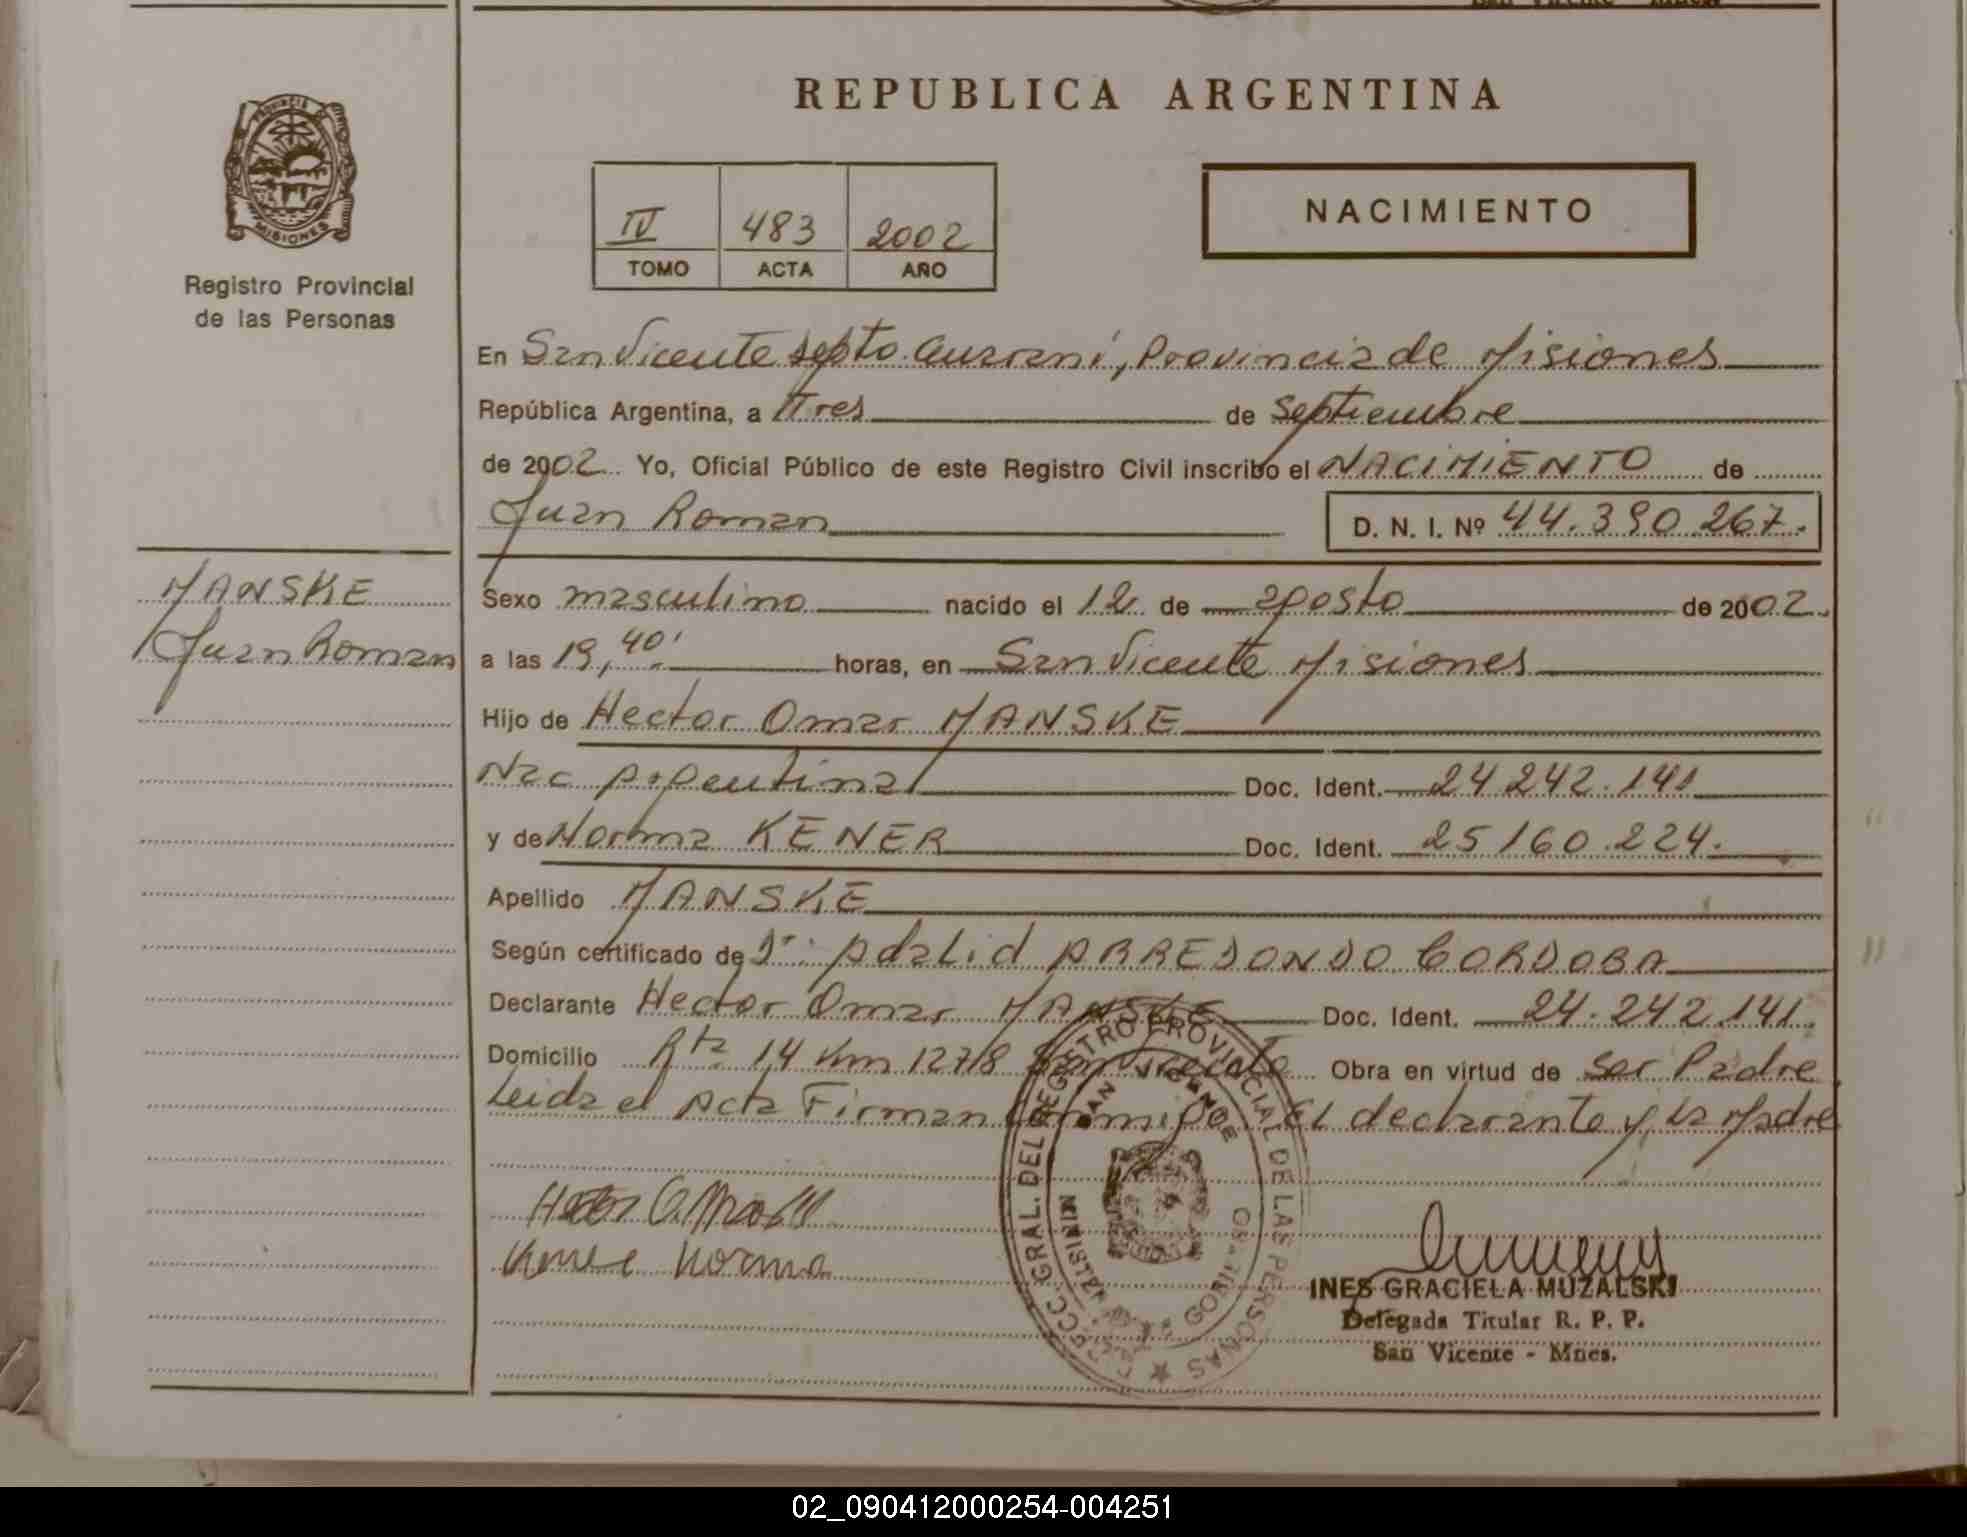 REPUBLICA ARGENTINA
PROVINCIA DE MISIONES
Registro Provincial
de las Personas
IV 483 2002
TOMO ACTA AÑO
NACIMIENTO
En San Vicente Depto. Guaraní, Provincia de Misiones
República Argentina, a Tres de Septiembre
de 2002 Yo, Oficial Público de este Registro Civil inscribo el NACIMIENTO de
Juan Roman D. N. I. Nº 44.390.267.
MANSKE
Juan Roman
Sexo masculino nacido el 12 de agosto de 2002
a las 19,40' horas, en San Vicente Misiones
Hijo de Hector Omar MANSKE
Nac Argentina Doc. Ident. 24 242.141
y de Norma KENER Doc. Ident. 25 160.224.
Apellido MANSKE
Según certificado de Dr: Adalid ARREDONDO CORDOBA
Declarante Hector Omar MANSKE Doc. Ident. 24.242.141.
Domicilio Rta 14 Km 1278 San Vicente Obra en virtud de ser Padre
Leida el Acta Firman conmigo El declarante y la Madre
DIRECC. GRAL. DEL REGISTRO PROVINCIAL DE LAS PERSONAS
SAN VICENTE
Norma
INES GRACIELA MUZALSKI
Delegada Titular R. P. P.
San Vicente - Mnes.
02_090412000254-004251